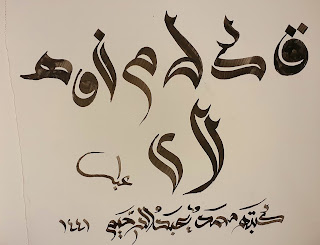 ق ك ل م ن و ه
لا ي
كتبه محمد عبدالرحيم ١٤٤١